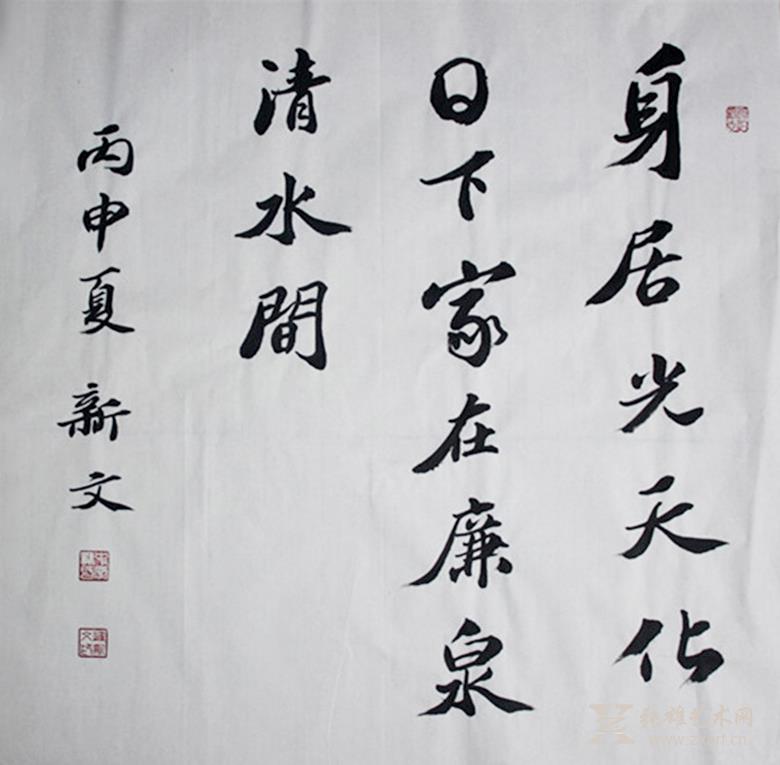 身居光天化
日下家在廉泉
清水間
丙申夏 新文
张雄艺术网
www.zxart.cn